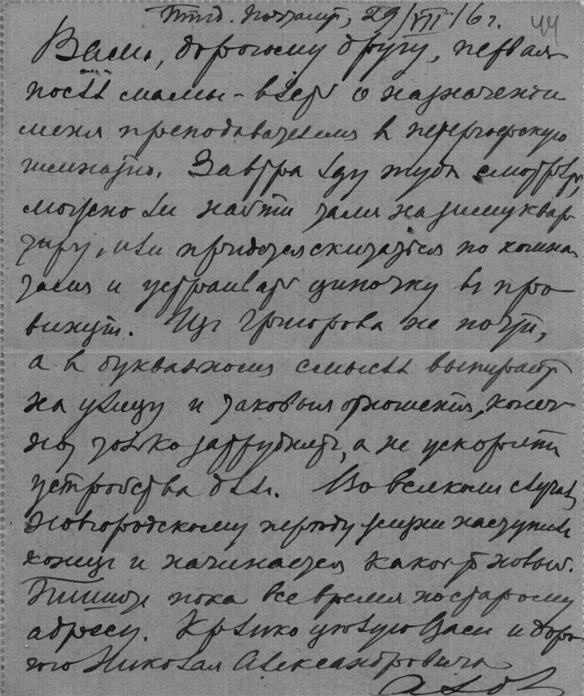 Птгд. Почтамт, 29/VII/16 г. 44
Вам, дорогому другу, первая
после мамы - весть о назначении
меня преподавателем в петергофскую
гимназию. Завтра еду туда смотреть,
можно ли найти там на зиму квар
тиру, или придется скитаться по комна
там и устраивать
вжит. Григорова не почти,
а в буквальном смысле выпирают
на улицу и таковыя отношения, конеч
но, только затрудняют, а не ускоряют
устройства дел. Во всяком случае
Новгородскому периоду жизни наступил
конец и начинается какой-то новый.
Пишите пока все время по старому
адресу. Крепко целую Вас и доро
гого Николая Александровича